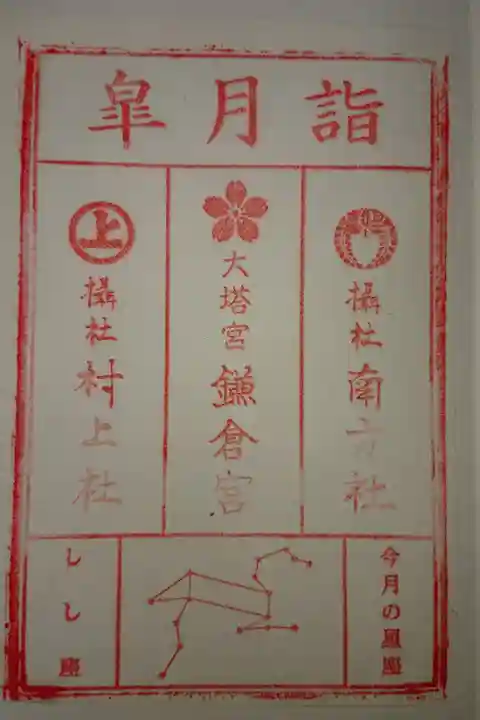 皐月詣
摂社 南方社
大塔宮 鎌倉宮
上
摂社 村上社
今月の星座
しし座